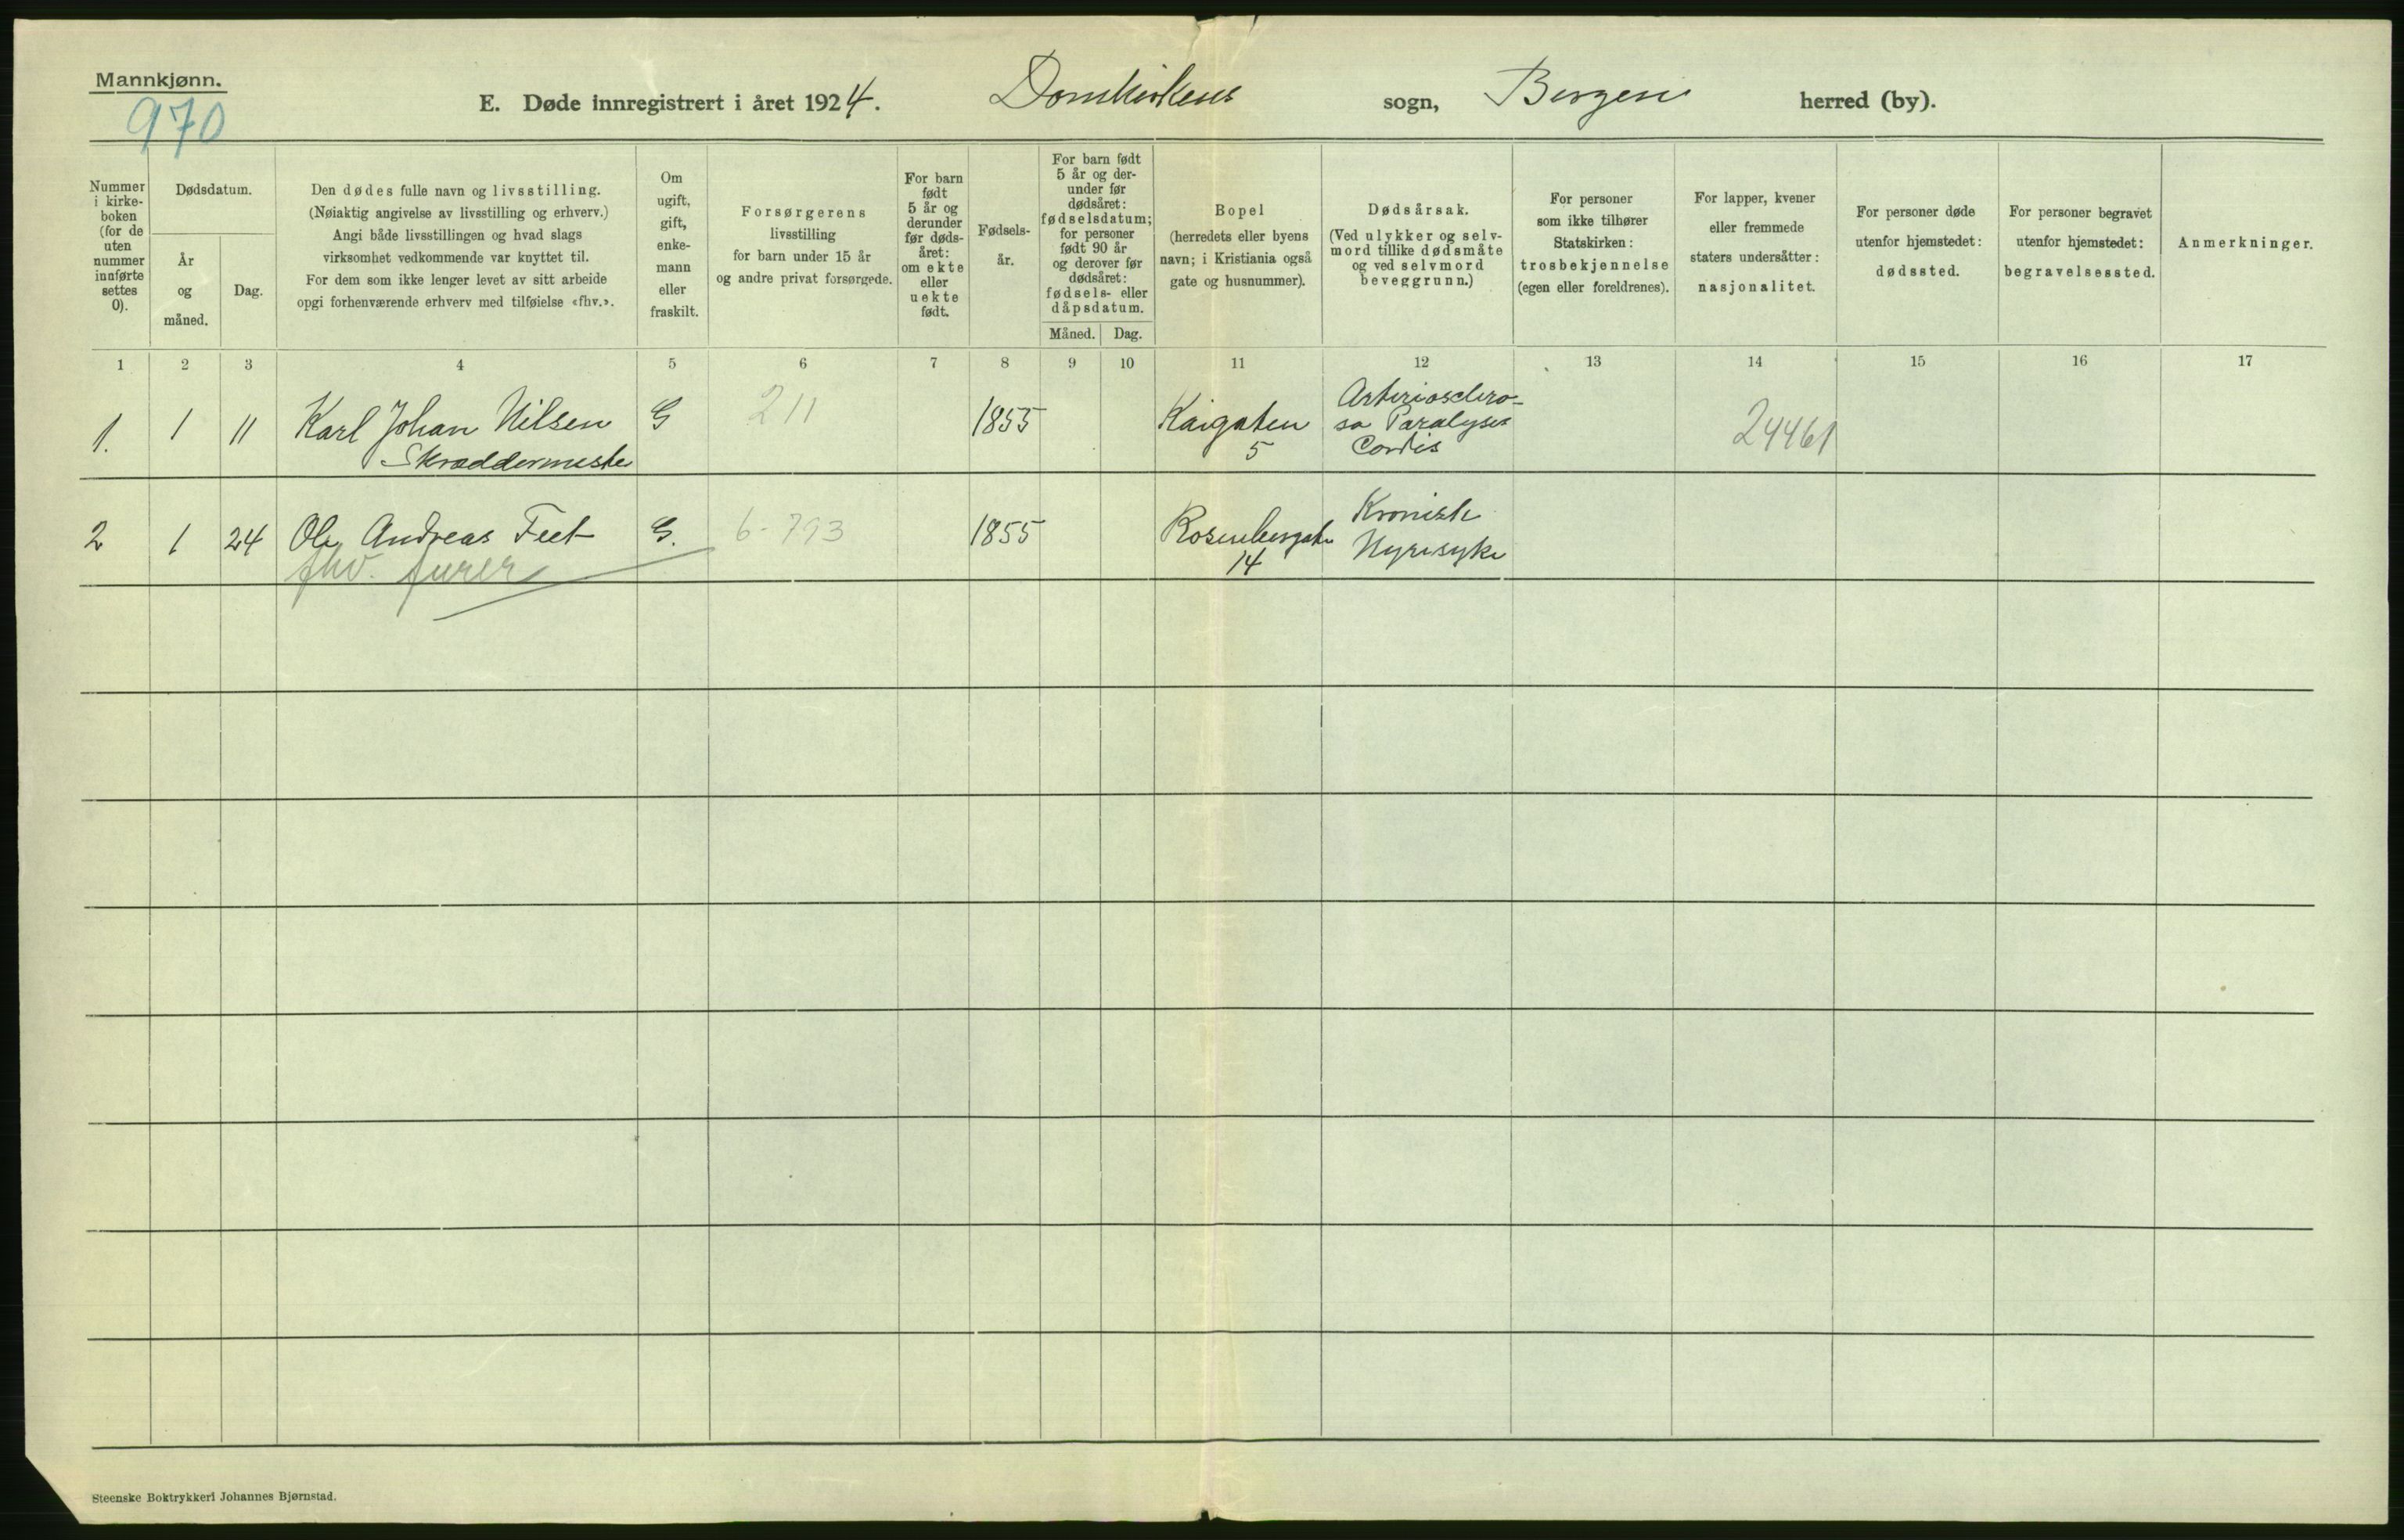 Mannkjønn.
970
E. Døde innregistrert i året 1924. Domkirkens sogn, Bergen herred (by).
Nummer
i kirke-
boken
(for de
uten
nummer
innførte
settes
0).
Dødsdatum.
År
og
måned.
Dag.
Den dødes fulle navn og livsstilling.
(Nøiaktig angivelse av livsstilling og erhverv.)
Angi både livsstillingen og hvad slags
virksomhet vedkommende var knyttet til.
For dem som ikke lenger levet av sitt arbeide
opgi forhenværende erhverv med tilføielse «fhv.».
Om
ugift,
gift,
enke-
mann
eller
fraskilt.
Forsørgerens
livsstilling
for barn under 15 år
og andre privat forsørgede.
For barn
født
5 år og
derunder
før døds-
året:
om ekte
eller
uekte
født.
Fødsels-
år.
For barn født
5 år og der-
under før
dødsåret:
fødselsdatum;
for personer
født 90 år
og derover før
dødsåret:
fødsels- eller
dåpsdatum.
Måned. Dag.
Bopel
(herredets eller byens
navn; i Kristiania også
gate og husnummer).
Dødsårsak.
(Ved ulykker og selv-
mord tillike dødsmåte
og ved selvmord
beveggrunn.)
For personer
som ikke tilhører
Statskirken:
trosbekjennelse
(egen eller foreldrenes).
For lapper, kvener
eller fremmede
staters undersåtter:
nasjonalitet.
For personer døde
utenfor hjemstedet:
dødssted.
For personer begravet
utenfor hjemstedet:
begravelsessted.
Anmerkninger.
1 2 3 4 5 6 7 8 9 10 11 12 13 14 15 16 17
1. 1 11 Karl Johan Nilsen
Skræddermester
G 211 1855 Kaigaten
5
Arteriosclero-
sa Paralysis
Cordis
24461
2 1 24 Ole Andreas Feet
fhv. furer
G. 6-793 1855 Rosenbergsgate
14
Kronisk
Nyresyke
Steenske Boktrykkeri Johannes Bjørnstad.